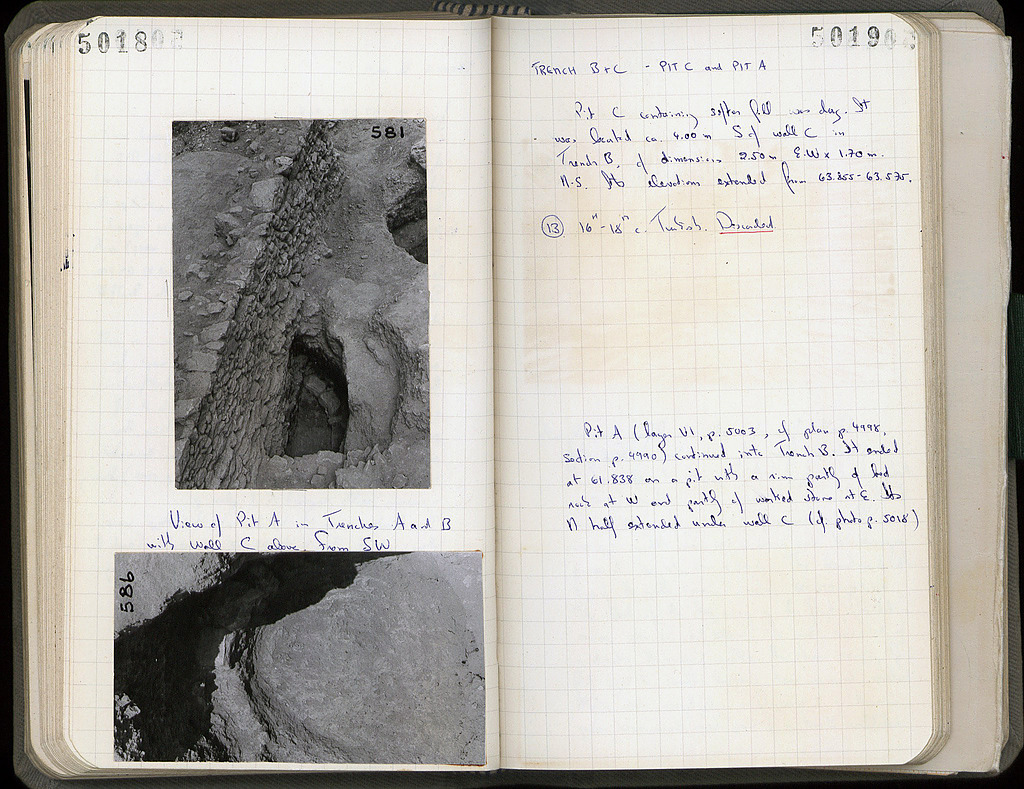 5018
581
View of Pit A in Trenches A and B
with wall C above. From SW
586
5019
TRENCH B+C - PIT C and PIT A
Pit C containing softer fill was dug. It
was located ca. 4.00 m S of wall C in
Trench B, of dimensions 2.50 m E.W x 1.70 m.
N-S. Its elevations extended from 63.855-63.575.
13 16th-18th c. Turkish. Discarded
Pit A (layer VI, p. 5003, cf plan p. 4998,
Section p. 4990) continued into Trench B. It ended
at 61.838 on a pit with a rim partly of bed
rock at W and partly of worked stone at E. Its
N half extended under wall C (cf. photo p. 5018)